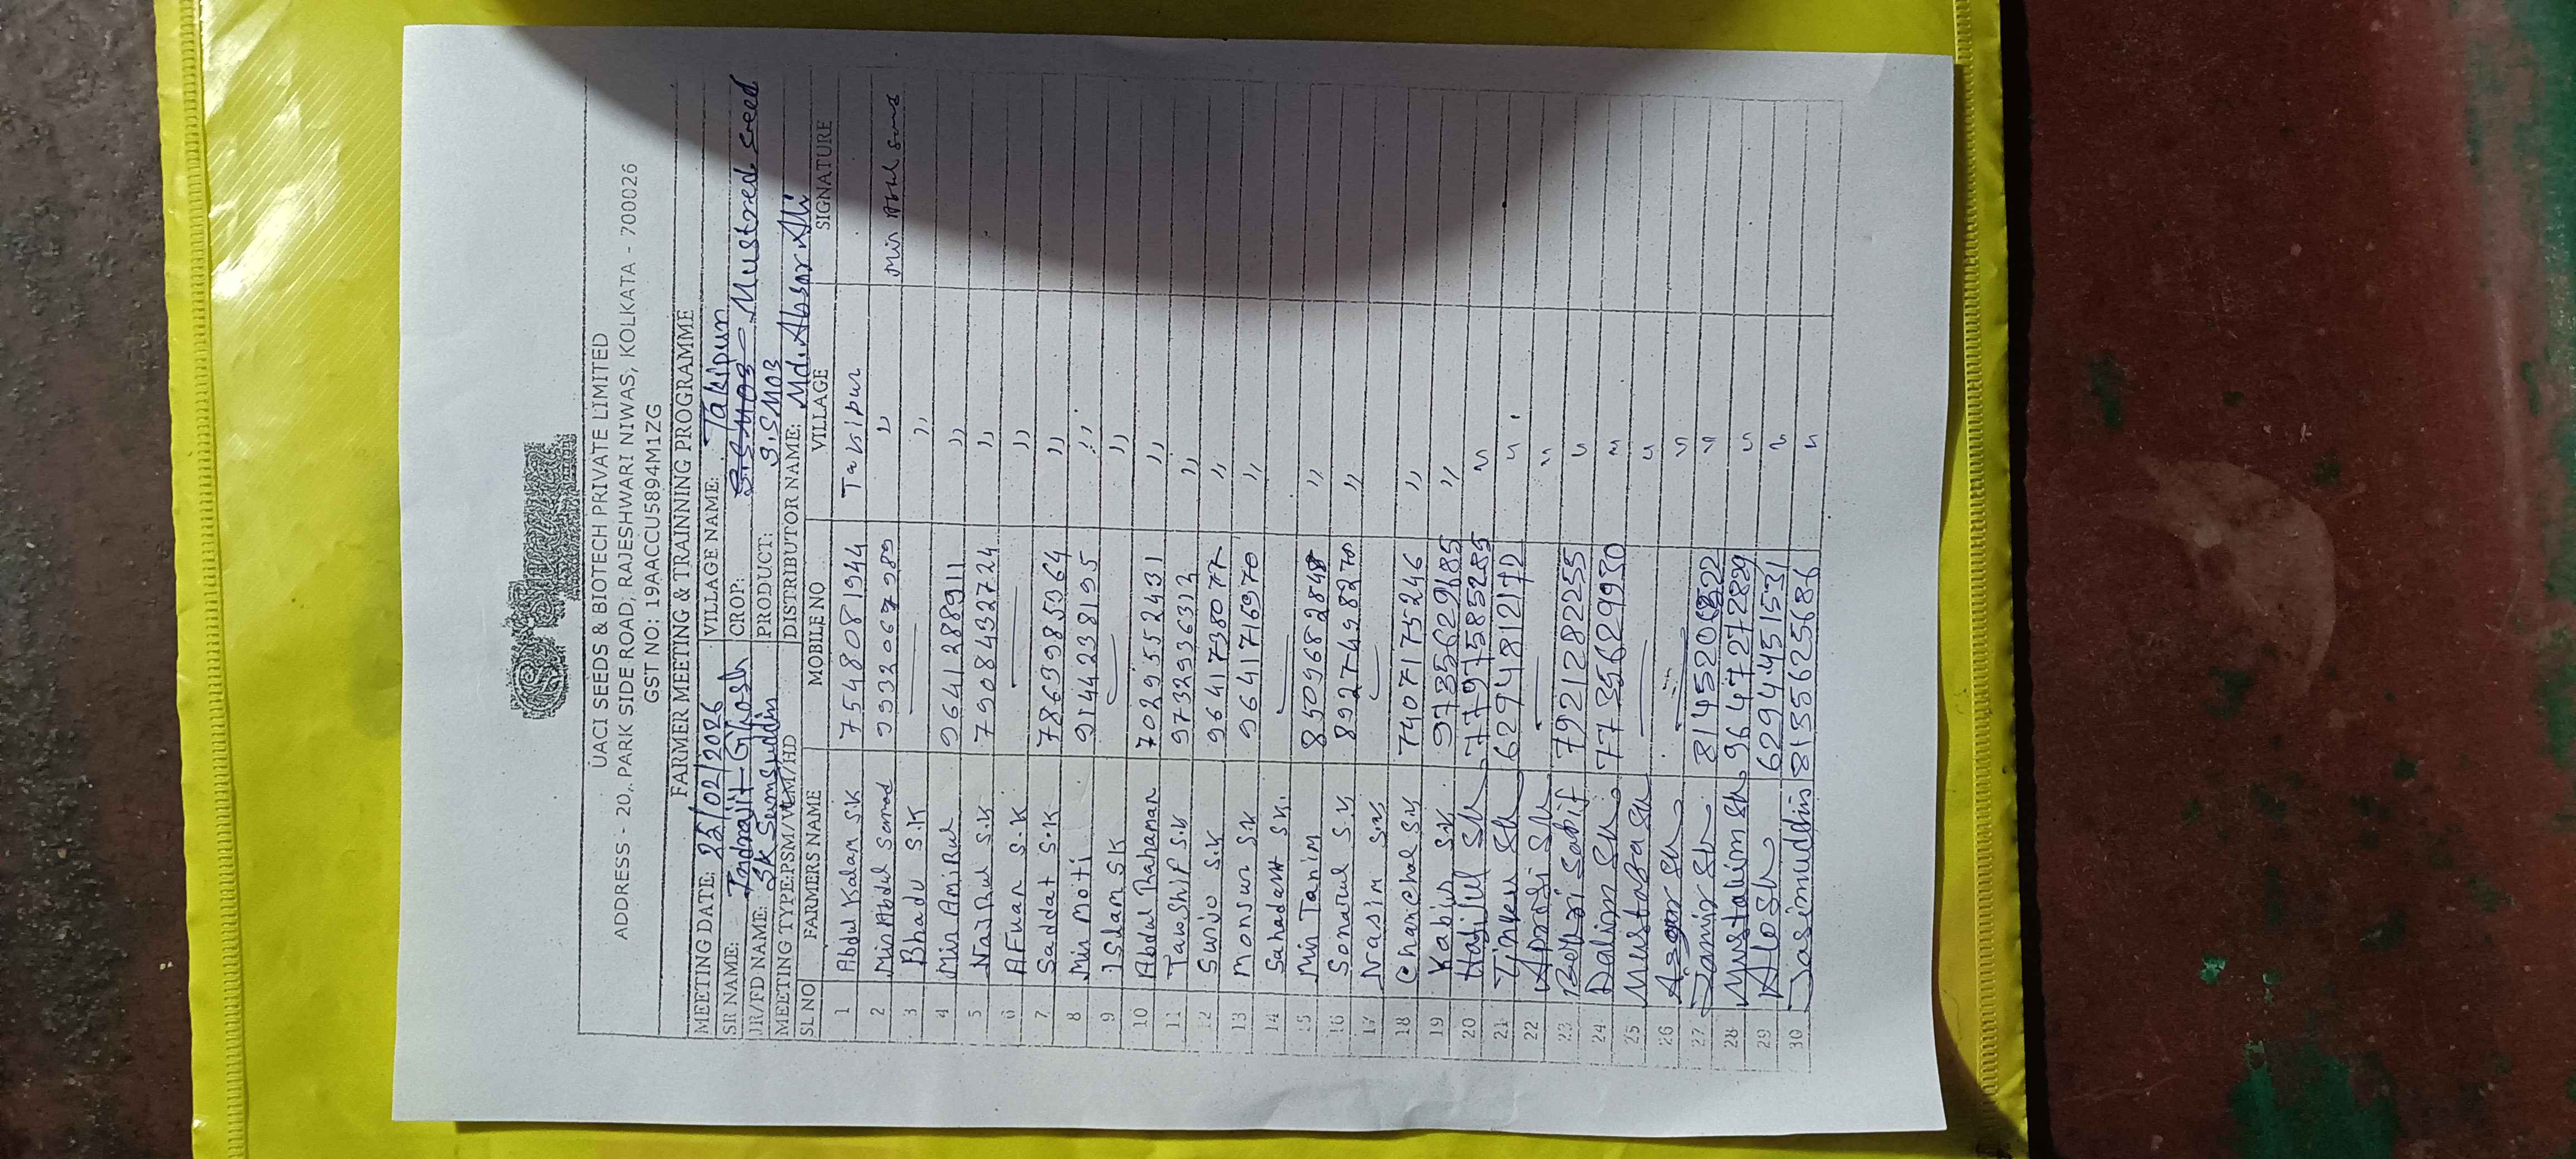 UACI SEEDS & BIOTECH PRIVATE LIMITED
ADDRESS - 20, PARK SIDE ROAD, RAJESHWARI NIWAS, KOLKATA - 700026
GST NO: 19AACCU5894M1ZG
FARMER MEETING & TRAINNING PROGRAMME
MEETING DATE: 22/02/2026 VILLAGE NAME: Takipur
SR NAME: Indrajit Ghosh CROP: Mustred seed
JR/FD NAME: SK Samsuddin PRODUCT: S.SM03
MEETING TYPE:PSM/VCM/HD DISTRIBUTOR NAME: Md. Absar Ali
SL NO FARMERS NAME MOBILE NO VILLAGE SIGNATURE
1 Abdul Kalam S.K 7548081944 Takipur
2 Mir Abdul Samad 9932067989 " Mir Abdul Samad
3 Bhadu S.K — "
4 Mir Amirul 9641288911 "
5 Najrul S.K 7908432724 "
6 AFuran S.K — "
7 Saddat S.K 7863985364 "
8 Mir Moti 9144238195 "
9 ISlam SK — "
10 Abdul Rahaman 7029552431 "
11 Tawshif S.K 9732936313 "
12 Surijo S.K 9641738077 "
13 Monsur S.K 9641716970 "
14 Sahadat S.K. —
15 Mir Tanim 8509682848 "
16 Sonarul S.K 8927498270 "
17 Nassim S.K —
18 Chanchal S.K 7407175246 "
19 Kabir S.K 9735629685 "
20 Hajilul Sk 7797585285 "
21 Tinku Sk 6294812172 "
22 Aprosi Sk — "
23 Sabif 7921282255 "
24 Dalim Sk 7735629930 "
25 Mustafa Sk — "
26 Asgar Sk — "
27 Jamir Sk "
28 Mustakim Sk 9647272829 "
29 Alo Sk 6294451531 "
30 Jasimuddin 8135625686 "